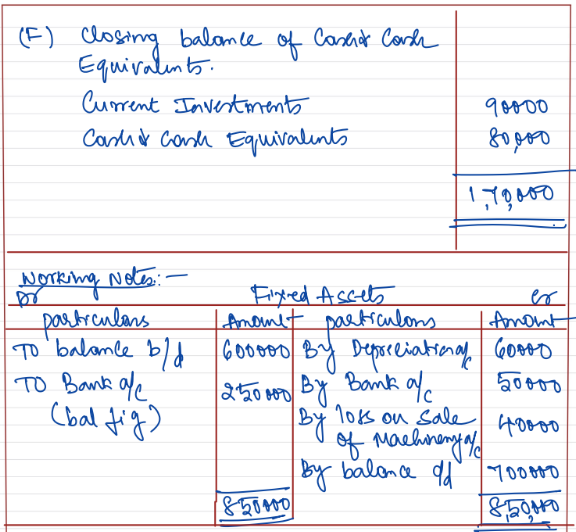 (F) Closing balance of Cash & Cash
Equivalents.
Current Investments 90000
Cash & Cash Equivalents 80,000
1,70,000
Working Notes:-
Dr Fixed Assets cr
particulars Amount particulars Amount
TO balance b/d 600000 By Depreciation a/c 60000
TO Bank a/c 250000 By Bank a/c 50000
(bal fig) By loss on sale 40000
of Machinery a/c
By balance c/d 700000
850000 8,50,000